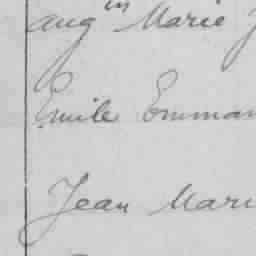 augin Marie J
Emile Emman
Jean Mari